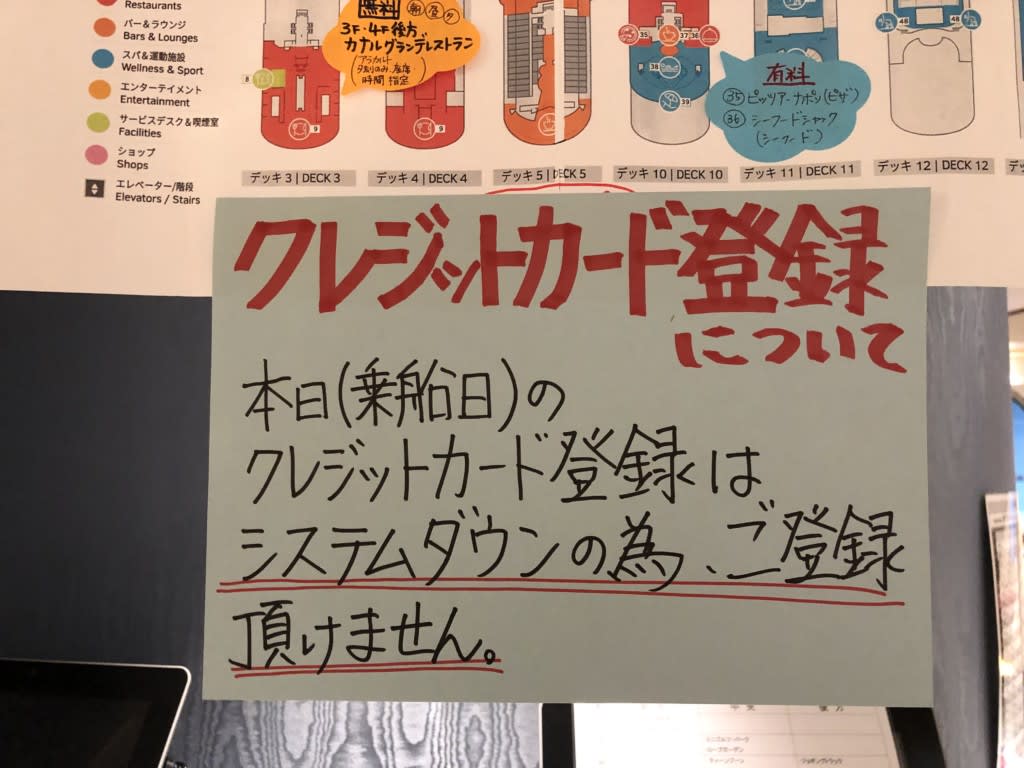 Restaurants
バー&ラウンジ
Bars & Lounges
スパ&運動施設
Wellness & Sport
エンターテイメント
Entertainment
サービスデスク&喫煙室
Facilities
ショップ
Shops
エレベーター/階段
Elevators / Stairs
無料 朝 昼 夕
3F・4F 後方
カナルグランデレストラン
有料
㉟ ピッツアーナポリ(ピザ)
㊱ シーフードシャック
(シーフード)
8
9
9
35
37
36
39
48
48
デッキ 3 | DECK 3
デッキ 4 | DECK 4
デッキ 5 | DECK 5
デッキ 10 | DECK 10
デッキ 11 | DECK 11
デッキ 12 | DECK 12
クレジットカード登録
について
本日(乗船日)の
クレジットカード登録は
システムダウンの為、ご登録
頂けません。